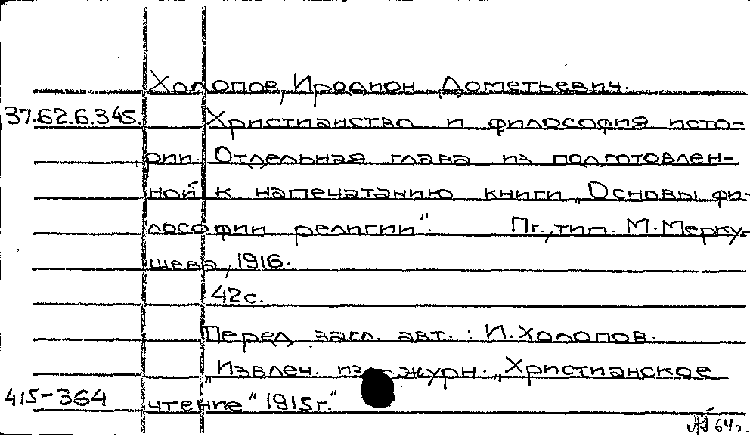 Холопов, Иродион Дометьевич.
37.62.6.345. Христианство и философия исто-
рии. Отдельная глава из подготовлен-
ной к напечатанию книги „Основы фи-
лософии религии". Пг., тип. М. Мерку-
шева, 1916.
42с.
Перед загл. авт.: И. Холопов.
„Извлеч. из журн. „Христианское
415-364 чтение" 1915г."
64г.